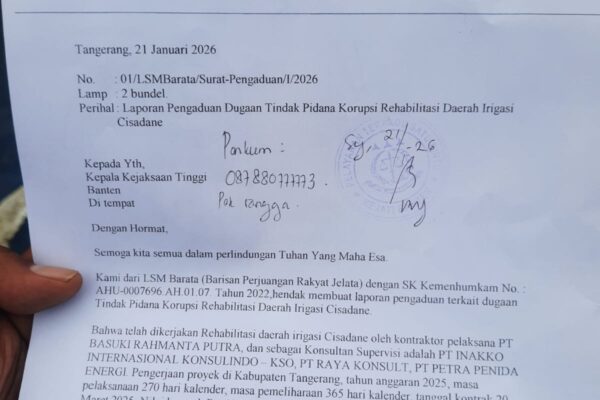 Tangerang, 21 Januari 2026
No. : 01/LSMBarata/Surat-Pengaduan/I/2026
Lamp : 2 bundel.
Perihal : Laporan Pengaduan Dugaan Tindak Pidana Korupsi Rehabilitasi Daerah Irigasi
Cisadane
Penkum :
21
-26
Kepada Yth,
Kepala Kejaksaan Tinggi
Banten
Di tempat
087880777773.
Pak rangga.
Dengan Hormat,
Semoga kita semua dalam perlindungan Tuhan Yang Maha Esa.
Kami dari LSM Barata (Barisan Perjuangan Rakyat Jelata) dengan SK Kemenhumkam No. :
AHU-0007696.AH.01.07. Tahun 2022,hendak membuat laporan pengaduan terkait dugaan
Tindak Pidana Korupsi Rehabilitasi Daerah Irigasi Cisadane.
Bahwa telah dikerjakan Rehabilitasi daerah irigasi Cisadane oleh kontraktor pelaksana PT
BASUKI RAHMANTA PUTRA, dan sebagai Konsultan Supervisi adalah PT INAKKO
INTERNASIONAL KONSULINDO – KSO, PT RAYA KONSULT, PT PETRA PENIDA
ENERGI. Pengerjaan proyek di Kabupaten Tangerang, tahun anggaran 2025, masa
pelaksanaan 270 hari kalender, masa pemeliharaan 365 hari kalender, tanggal kontrak 20
Maret 2025.